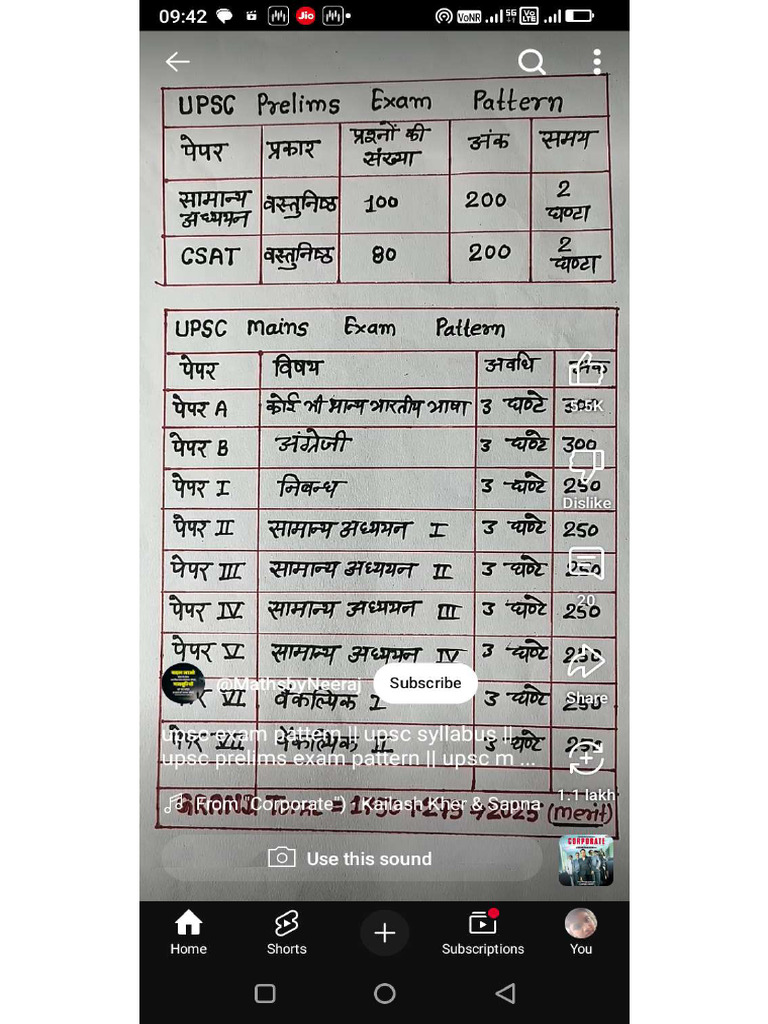 09:42
Jio
VoNR
5G
Vo LTE
UPSC Prelims Exam Pattern
पेपर प्रकार प्रश्नों की संख्या अंक समय
सामान्य अध्ययन वस्तुनिष्ठ 100 200 2 घण्टा
CSAT वस्तुनिष्ठ 80 200 2 घण्टा
UPSC Mains Exam Pattern
पेपर विषय अवधि अंक
पेपर A कोई भी मान्य भारतीय भाषा 3 घण्टे 300
5.5K
पेपर B अंग्रेजी 3 घण्टे 300
पेपर I निबन्ध 3 घण्टे 250
Dislike
पेपर II सामान्य अध्ययन I 3 घण्टे 250
पेपर III सामान्य अध्ययन II 3 घण्टे 250
20
पेपर IV सामान्य अध्ययन III 3 घण्टे 250
पेपर V सामान्य अध्ययन IV 3 घण्टे 250
@MathsbyNeeraj Subscribe
Share
VI वैकल्पिक I 3 घण्टे 250
पेपर VII वैकल्पिक II 3 घण्टे 250
upsc exam pattern || upsc syllabus ||
upsc prelims exam pattern || upsc m ...
1.1 lakh
GRAND TOTAL = 1750 + 275 → 2025 (merit)
From "Corporate") · Kailash Kher & Sapna
Use this sound
CORPORATE
Home Shorts Subscriptions You